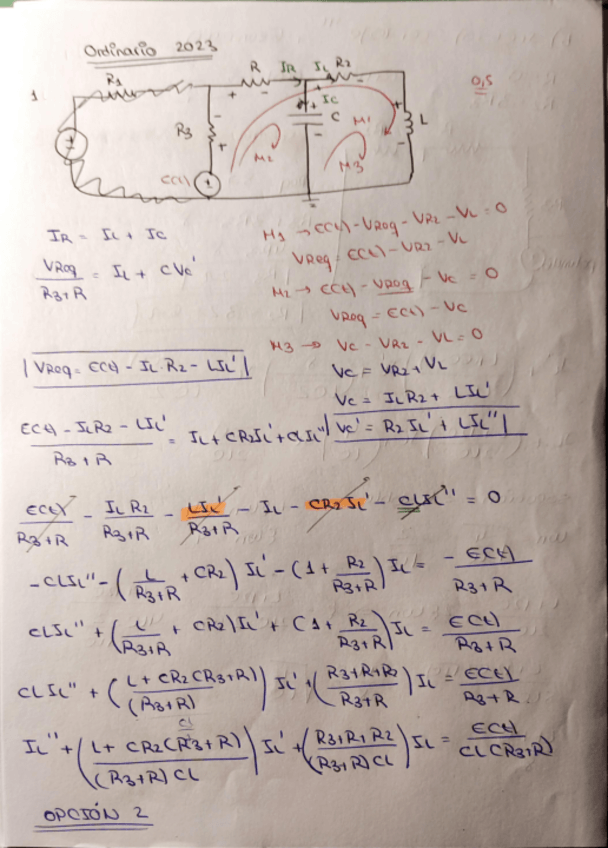 Ordinario 2023
0,5
1
R1
R IR IL R2
IC
R3
C
L
M1
M2
M3
E(t)
IR = IL + IC
VReq / R3+R = IL + CVc'
M1 → E(t) - VReq - VR2 - VL = 0
VReq = E(t) - VR2 - VL
M2 → E(t) - VReq - Vc = 0
VReq = E(t) - Vc
M3 → Vc - VR2 - VL = 0
Vc = VR2 + VL
Vc = ILR2 + LIL'
Vc' = R2IL' + LIL''
VReq = E(t) - IL·R2 - LIL'
E(t) - ILR2 - LIL' / R3+R = IL + CR2IL' + CLIL''
E(t) / R3+R - ILR2 / R3+R - LIL' / R3+R - IL - CR2IL' - CLIL'' = 0
-CLIL'' - (L / R3+R + CR2) IL' - (1 + R2 / R3+R) IL = -E(t) / R3+R
CLIL'' + (L / R3+R + CR2) IL' + (1 + R2 / R3+R) IL = E(t) / R3+R
CLIL'' + (L + CR2(R3+R) / (R3+R)) IL' + (R3+R+R2 / R3+R) IL = E(t) / R3+R
IL'' + (L + CR2(R3+R) / (R3+R)CL) IL' + (R3+R+R2 / (R3+R)CL) IL = E(t) / CL(R3+R)
OPCIÓN 2